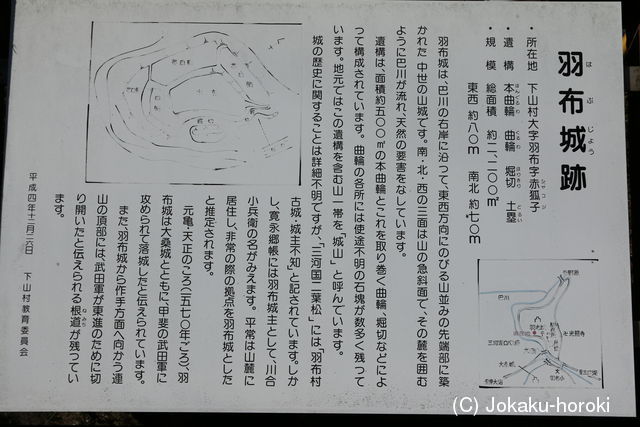 羽布城跡
はぶじょう
・所在地 下山村大字羽布字赤狐子
・遺構 本曲輪 曲輪 堀切 土塁
・規模 総面積 約二、二〇〇㎡
東西 約八〇m 南北 約七〇m
羽布城は、巴川の右岸に沿って、東西方向にのびる山並みの先端部に築
かれた中世の山城です。南・北・西の三面は山の急斜面で、その麓を囲む
ように巴川が流れ、天然の要害をなしています。
遺構は、面積約五〇〇㎡の本曲輪とこれを取り巻く曲輪、堀切などによ
って構成されています。曲輪の各所には使途不明の石塊が数多く残って
います。地元ではこの遺構を含む山一帯を「城山」と呼んでいます。
城の歴史に関することは詳細不明ですが、「三河国二葉松」には「羽布村
古城・城主不知」と記されています。しか
し、寛永郷帳には羽布城主として、川合
小兵衛の名がみえます。平常は山麓に
居住し、非常の際の拠点を羽布城とした
と推定されます。
元亀・天正のころ（一五七〇年ごろ）、羽
布城は大桑城とともに、甲斐の武田軍に
攻められて落城したと伝えられています。
また、羽布城から作手方面へ向かう連
山の頂部には、武田軍が東進のために切
り開いたと伝えられる根道が残ってい
ます。
平成四年十二月二六日 下山村教育委員会
巴川
(C) Jokaku-horoki